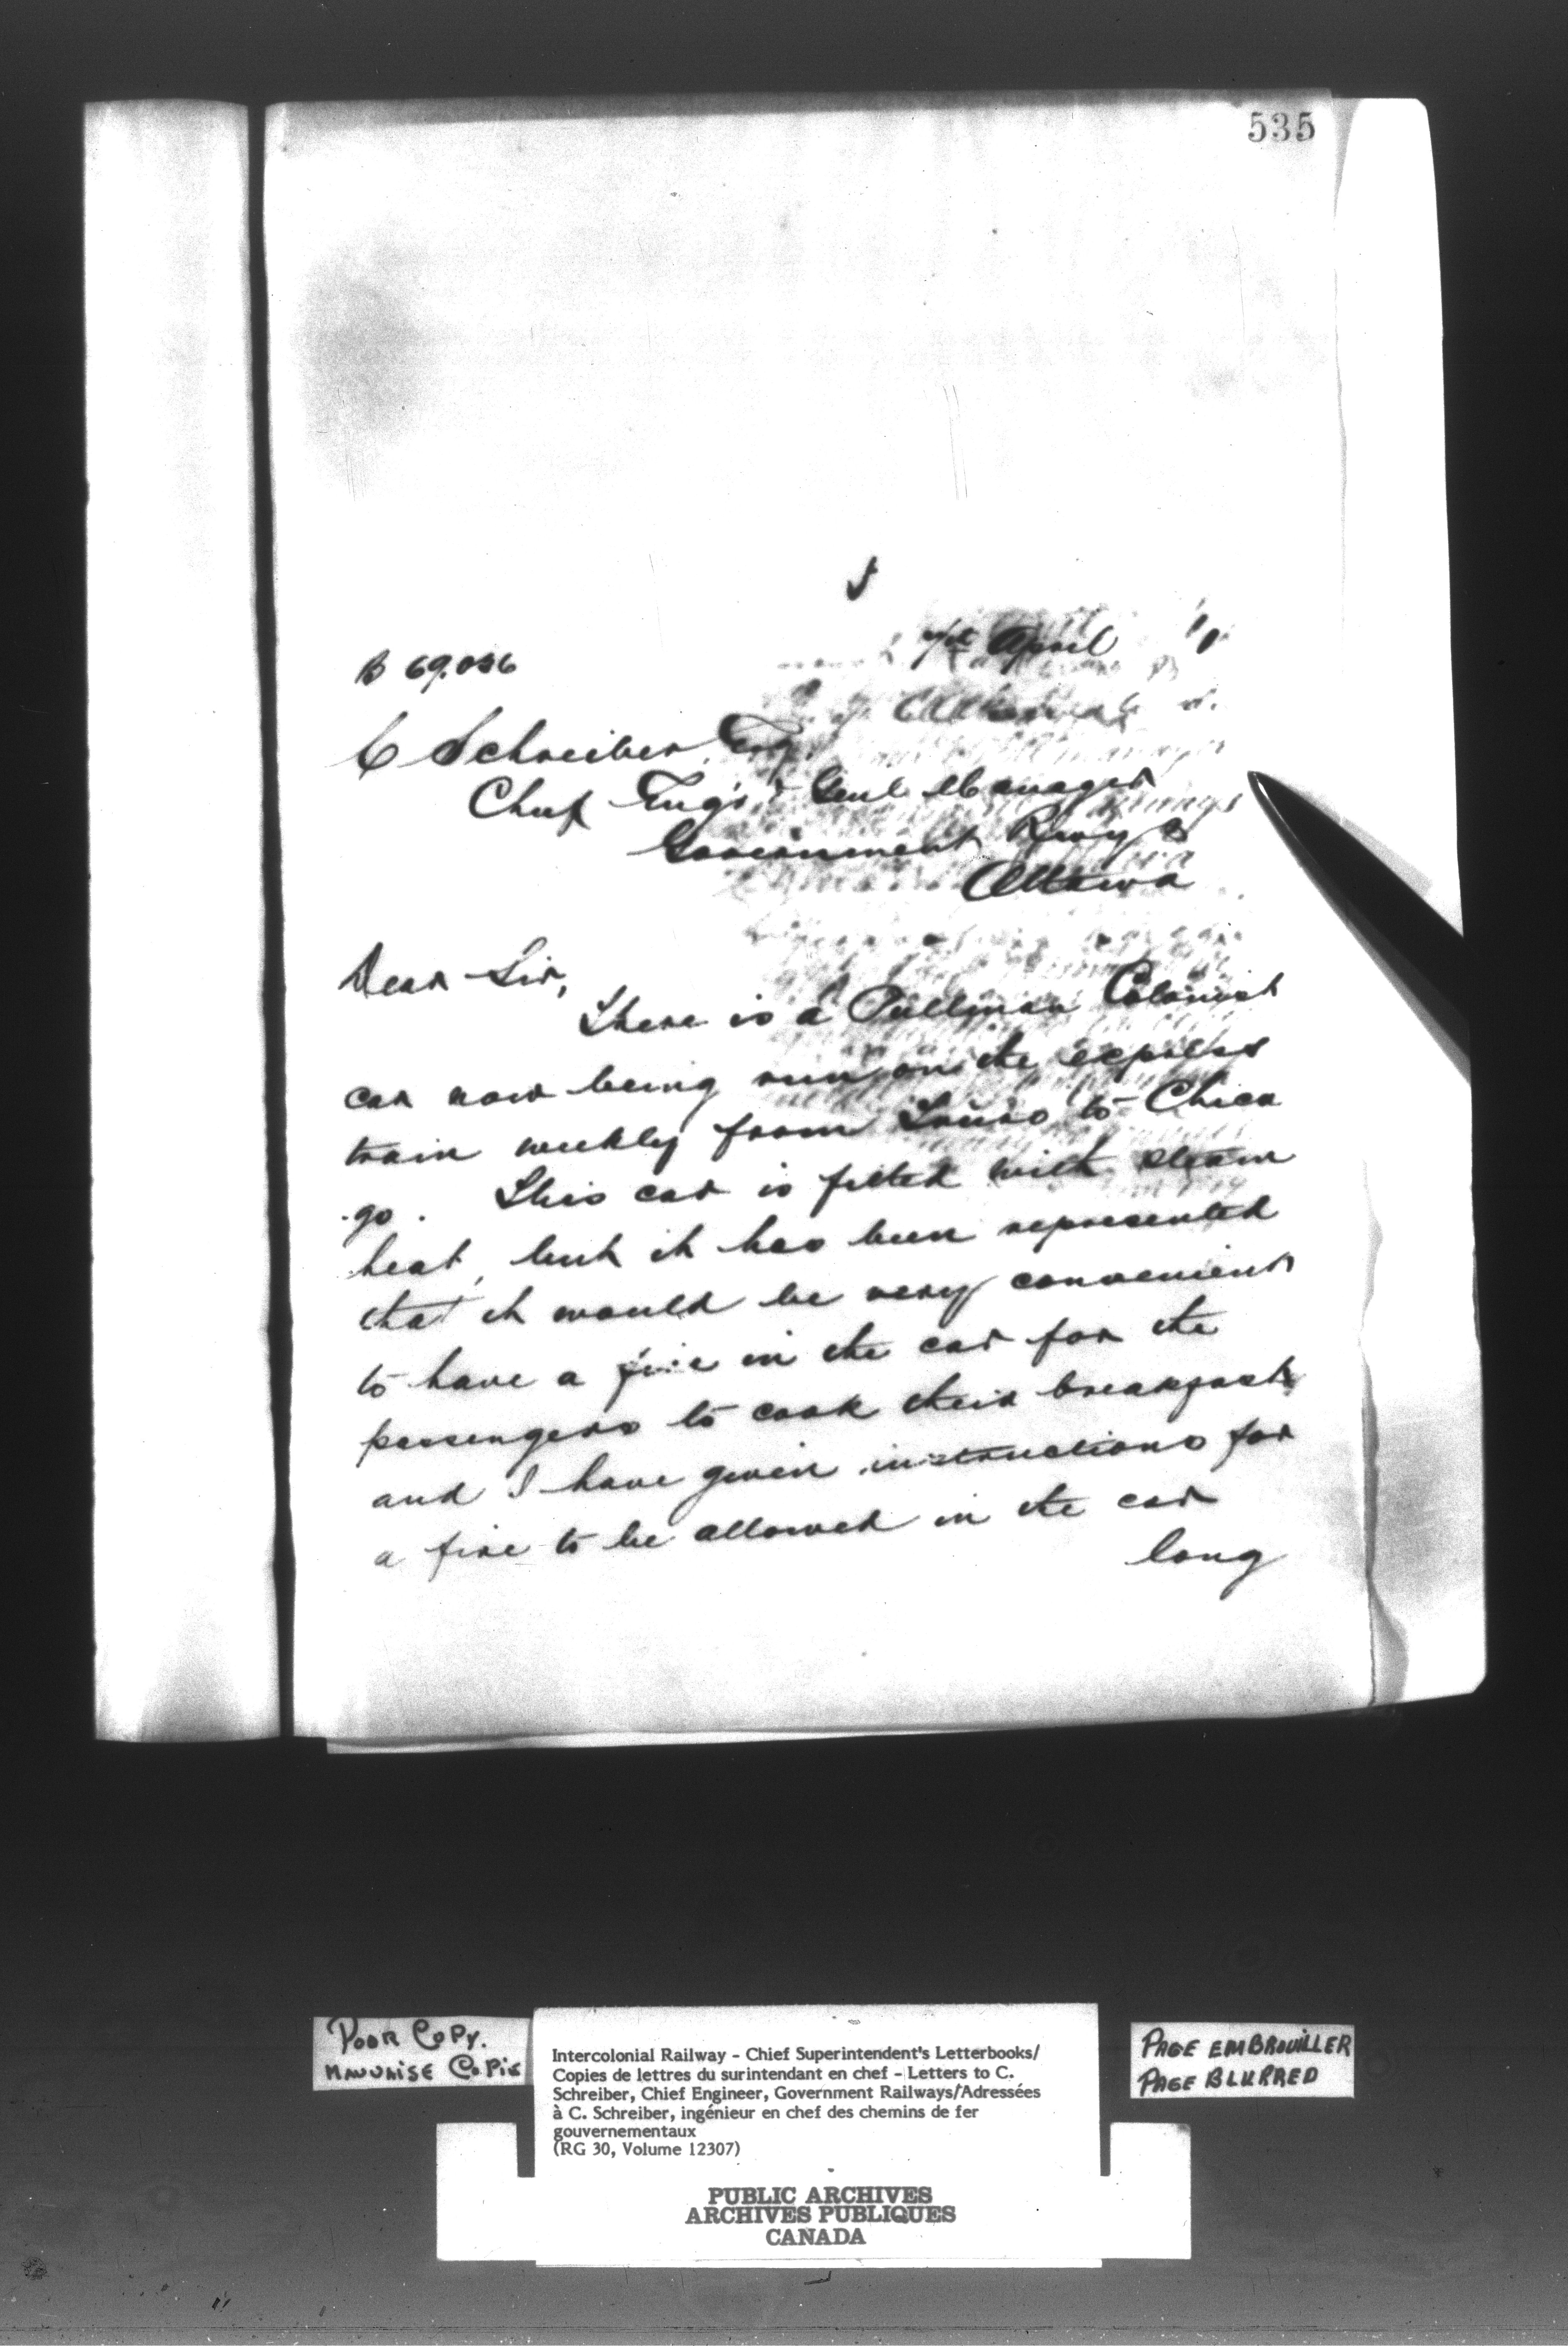 535
April
B 69.036
C Schreiber, Esq.
Chief Eng'r & Genl Manager
Government Rwys
Ottawa
Dear Sir,
There is a Pullman Colonist
car now being run on the express
train weekly from Truro to Chica
go. This car is fitted with steam
heat, but it has been represented
that it would be very convenient
to have a fire in the car for the
passengers to cook their breakfasts
and I have given instructions for
a fire to be allowed in the car
long
POOR COPY.
MAUVAISE COPIE
Intercolonial Railway - Chief Superintendent's Letterbooks/
Copies de lettres du surintendant en chef - Letters to C.
Schreiber, Chief Engineer, Government Railways/Adressées
à C. Schreiber, ingénieur en chef des chemins de fer
gouvernementaux
(RG 30, Volume 12307)
PUBLIC ARCHIVES
ARCHIVES PUBLIQUES
CANADA
PAGE EMBROUILLER
PAGE BLURRED